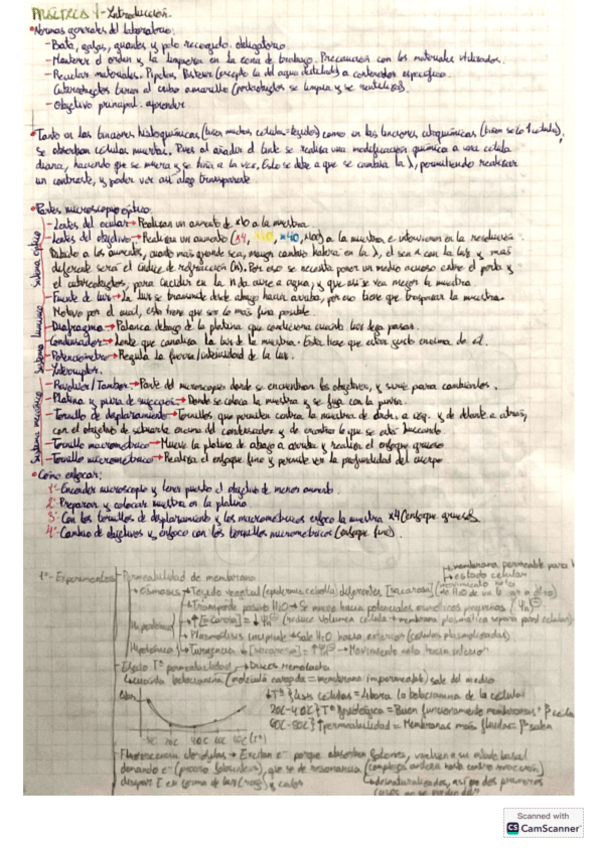 PRÁCTICA 1 - Introducción.
• Normas generales del laboratorio:
- Bata, gafas, guantes y pelo recogido obligatorio
- Mantener el orden y la limpieza en la zona de trabajo. Precaución con los materiales utilizados.
- Reciclar materiales. Pipetas, Pasteur (excepto la del agua destilada) a contenedor específico.
Cubreobjetos tirar al cubo amarillo (portaobjetos se limpia y se reutiliza).
- Objetivo principal: aprender
• Tanto en las tinciones histoquímicas (tiñen muchas células = tejidos) como en las tinciones citoquímicas (tiñen solo 1 célula),
se observan células muertas. Pues al añadir el tinte se realiza una modificación química a una célula
diana, haciendo que se muera y se tiña a la vez. Esto se debe a que se cambia la λ, permitiendo realizar
un contraste, y poder ver así algo transparente
• Partes microscopio óptico:
Sistema óptico
- Lentes del ocular → Realizan un aumento de x10 a la muestra.
- Lentes del objetivo → Realizan un aumento (x4, x10, x40, x100) a la muestra e intervienen en la resolución
Debido a los aumentos, cuanto más grande sea, mayor cambio habrá en la λ, el sen α con la luz y más
diferente será el índice de refracción (n). Por eso se necesita poner un medio acuoso entre el porta y
el cubreobjetos, para incidir en la n da aire a agua, y que así se vea mejor la muestra.
Sistema lumínico
- Fuente de luz → La luz se transmite desde abajo hacia arriba, por eso tiene que traspasar la muestra.
Motivo por el cual, esta tiene que ser lo más fina posible.
- Diafragma → Palanca debajo de la platina que condiciona cuánta luz deja pasar.
- Condensador → Lente que canaliza la luz de la muestra. Esta tiene que estar justo encima de él.
- Potenciómetro → Regula la fuerza/intensidad de la luz.
- Interruptor.
Sistema mecánico
- Revólver/Tambor → Parte del microscopio donde se encuentran los objetivos, y sirve para cambiarlos.
- Platina y pinza de sujeción → Donde se coloca la muestra y se fija con la pinza.
- Tornillo de desplazamiento → Tornillos que permiten centrar la muestra de dcha. a izq. y de delante a atrás,
con el objetivo de situarla encima del condensador y de encontrar lo que se está buscando.
- Tornillo macrométrico → Mueve la platina de abajo a arriba y realiza el enfoque grueso
- Tornillo micrométrico → Realiza el enfoque fino y permite ver la profundidad del cuerpo
• Cómo enfocar:
1º- Encender microscopio y tener puesto el objetivo de menor aumento.
2º- Preparar y colocar muestra en la platina
3º- Con los tornillos de desplazamiento y los macrométricos enfoco la muestra x4 (enfoque grueso).
4º- Cambio de objetivos y enfoco con los tornillos micrométricos (enfoque fino).
1º- Experimentos - Permeabilidad de membrana
→ membrana permeable para
→ estado celular
→ Osmosis → Tejido vegetal (epidermis cebolla) diferentes [sacarosa]
→ Transporte pasivo H₂O → Se mueve hacia potenciales osmóticos
→ ↑[Sacarosa] = reduce volumen célula + membrana plasmática separa pared celular
→ Plasmólisis incipiente → Sale H₂O hacia exterior (células plasmolizadas)
Hipotónica → Turgencia ↓[sacarosa] → Movimiento neto hacia interior
- Efecto Tª permeabilidad → Discos Remolacha
→ cuánta betacianina (molécula cargada = membrana impermeable) sale del medio
↓Tª Lisis células = Libera la betacianina de la célula
20C-40C Tª fisiológica = Buen funcionamiento membranas
60C-80C ↑permeabilidad = Membranas más fluidas = salen
20C 40C 60C
- Fluorescencia clorofilas → Excitan e⁻ porque absorben fotones, vuelven a su estado basal
donando e⁻ (proceso fotosíntesis),
disipar E en forma de luz (rojo) y calor
Scanned with
CS CamScanner